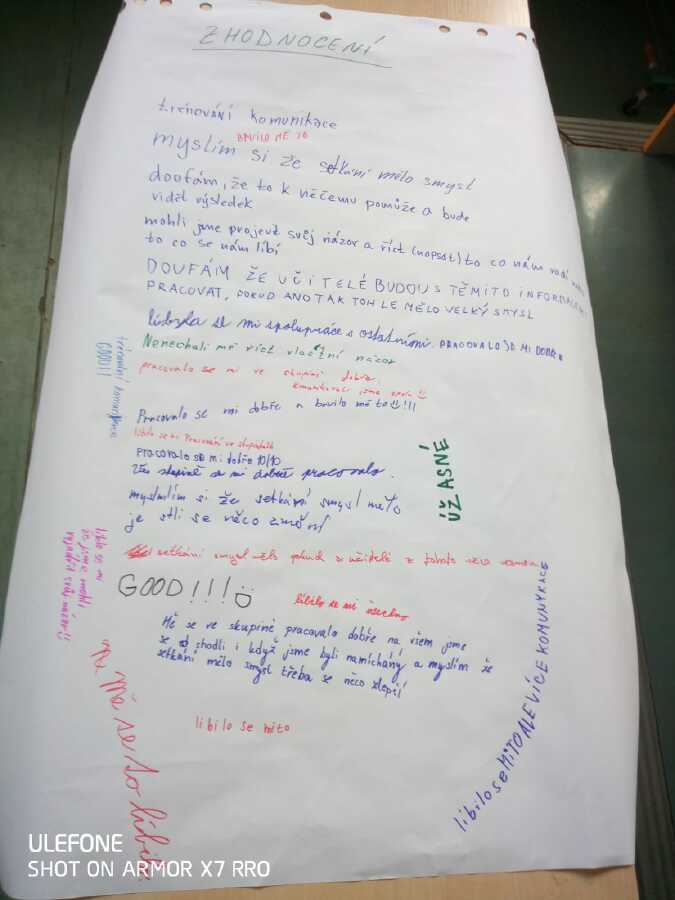 ZHODNOCENÍ
trénování komunikace
BAVILO MĚ TO
myslím si že setkání mělo smysl
doufám, že to k něčemu pomůže a bude
vidět výsledek
mohli jsme projevit svůj názor a říct (napsat) to co nám vadí
to co se nám líbí
DOUFÁM ŽE UČITELÉ BUDOU S TĚMITO INFORMACEMI
PRACOVAT, POKUD ANO TAK TOHLE MĚLO VELKÝ SMYSL
líbyla se mi spolupráce s ostatními. PRACOVALO SE MI DOBŘE
Nenechali mě říct vlastní názor
pracovalo se mi ve skupině dobře.
komunikovali jsme spolu
trénování komunikace
GOOD!!
Pracovalo se mi dobře a bavilo mě to☺!!!
líbilo se mi Pracování ve skupinkách
PRACOVALO SE MI DOBŘE 10/10
ve skupině se mi dobře pracovalo.
ÚŽASNÉ
myslím si že setkání smysl mělo
je stli se něco změní
setkání smysl mělo pokud si učitelé z tohoto něco vezmou
líbilo se mi
že jsme mohli
vyjádřit svůj názor!!
GOOD!!!☺
líbilo se mi všechno
Mě se ve skupině pracovalo dobře na všem jsme
se shodli i když jsme byli namíchány a myslím že
setkání mělo smysl třeba se něco zlepší
libilo se mito
Mě se to líbilo
libilo se MITO ALE VÍCE KOMUNYKACE
ULEFONE
SHOT ON ARMOR X7 RRO